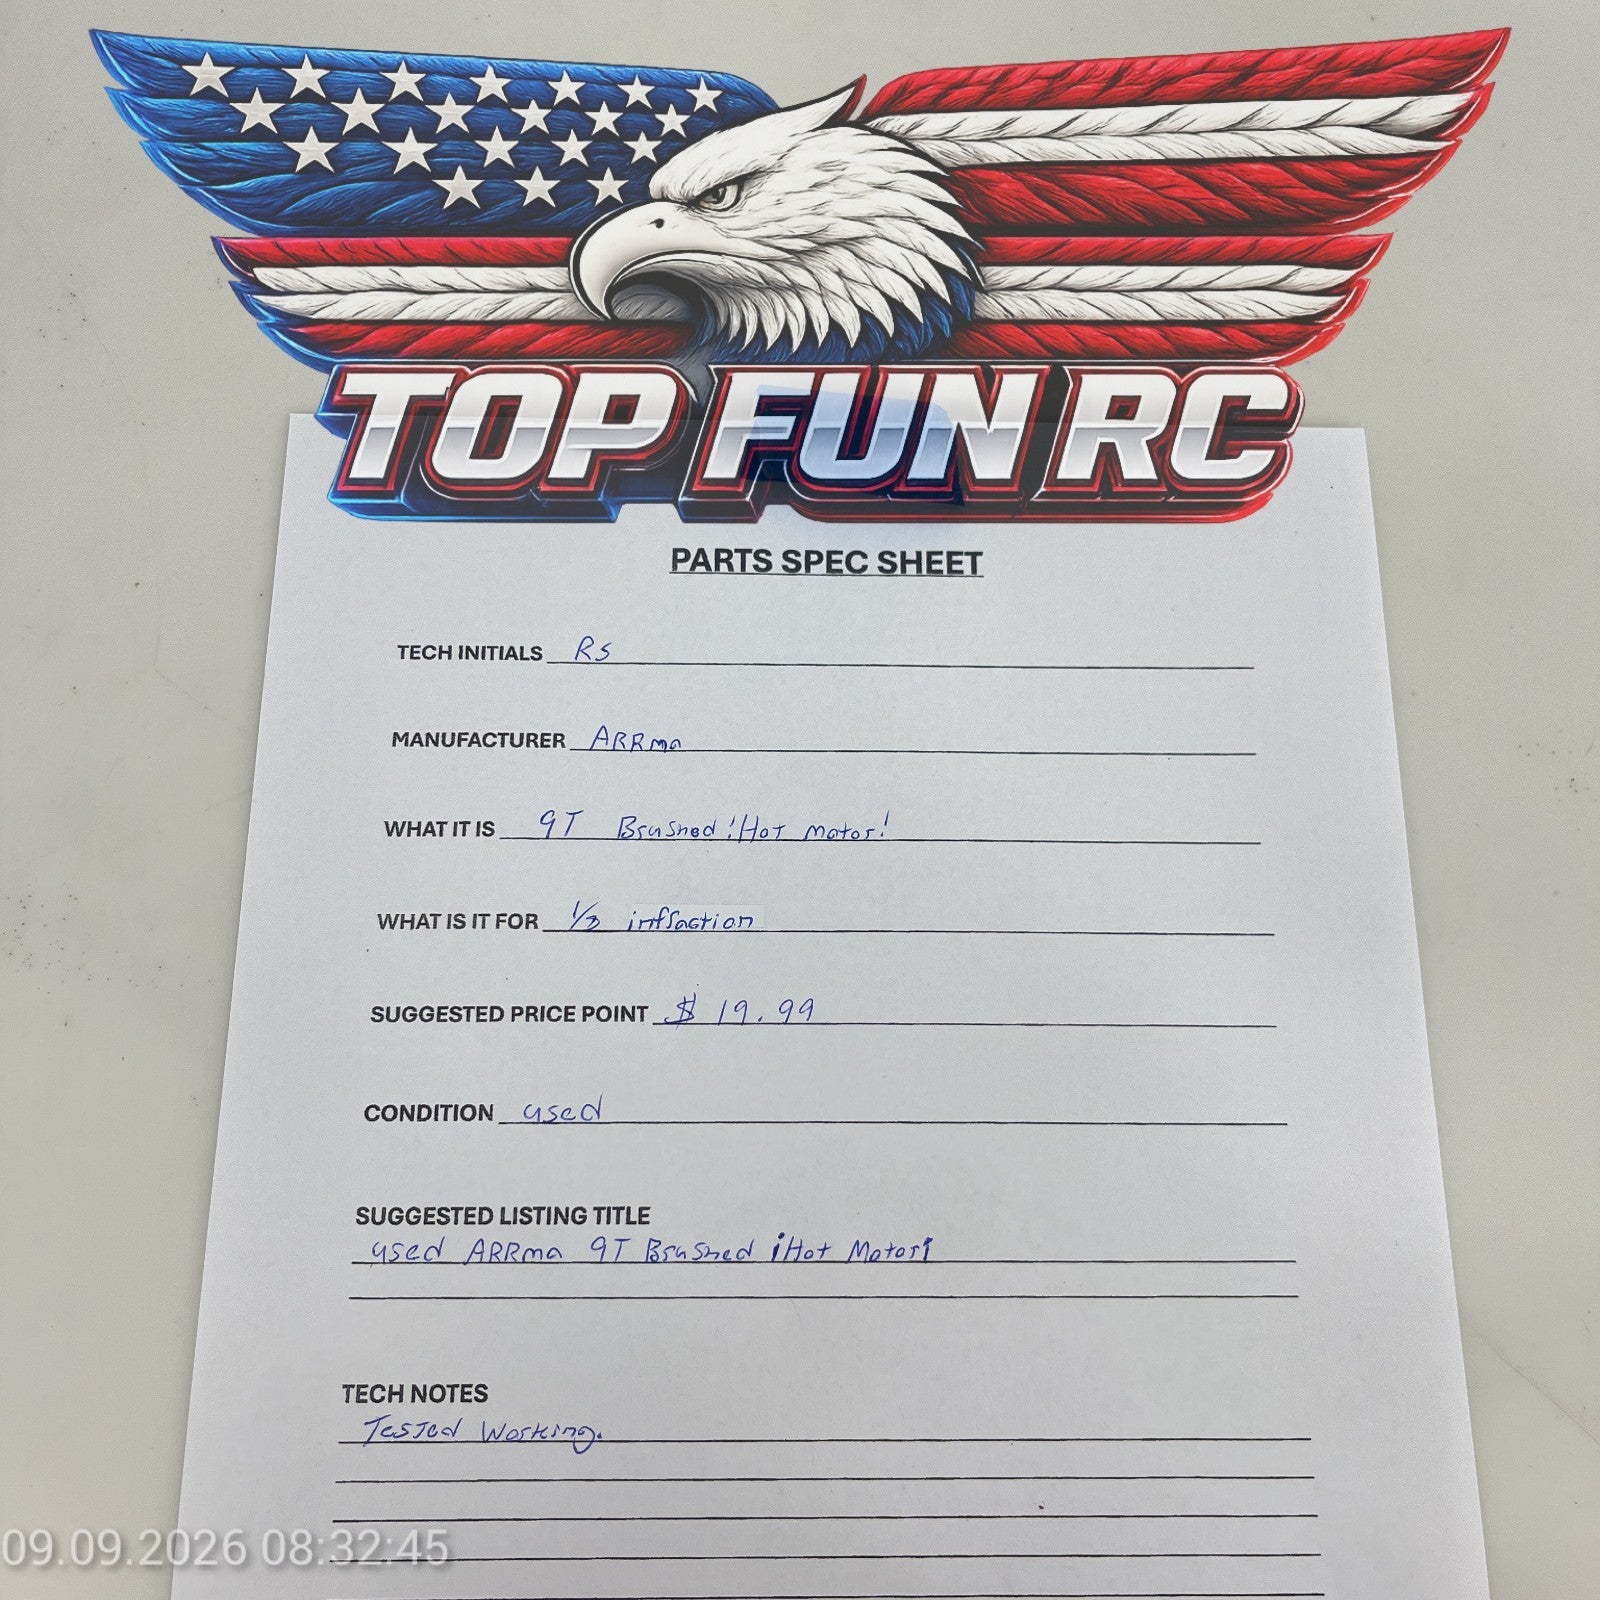 TOP FUN RC
PARTS SPEC SHEET
TECH INITIALS RS
MANUFACTURER ARRma
WHAT IT IS 9T Brushed !Hot motor!
WHAT IS IT FOR 1/8 infraction
SUGGESTED PRICE POINT $ 19.99
CONDITION used
SUGGESTED LISTING TITLE
used ARRma 9T Brushed ¡Hot Motor!
TECH NOTES
Tested Working.
09.09.2026 08:32:45